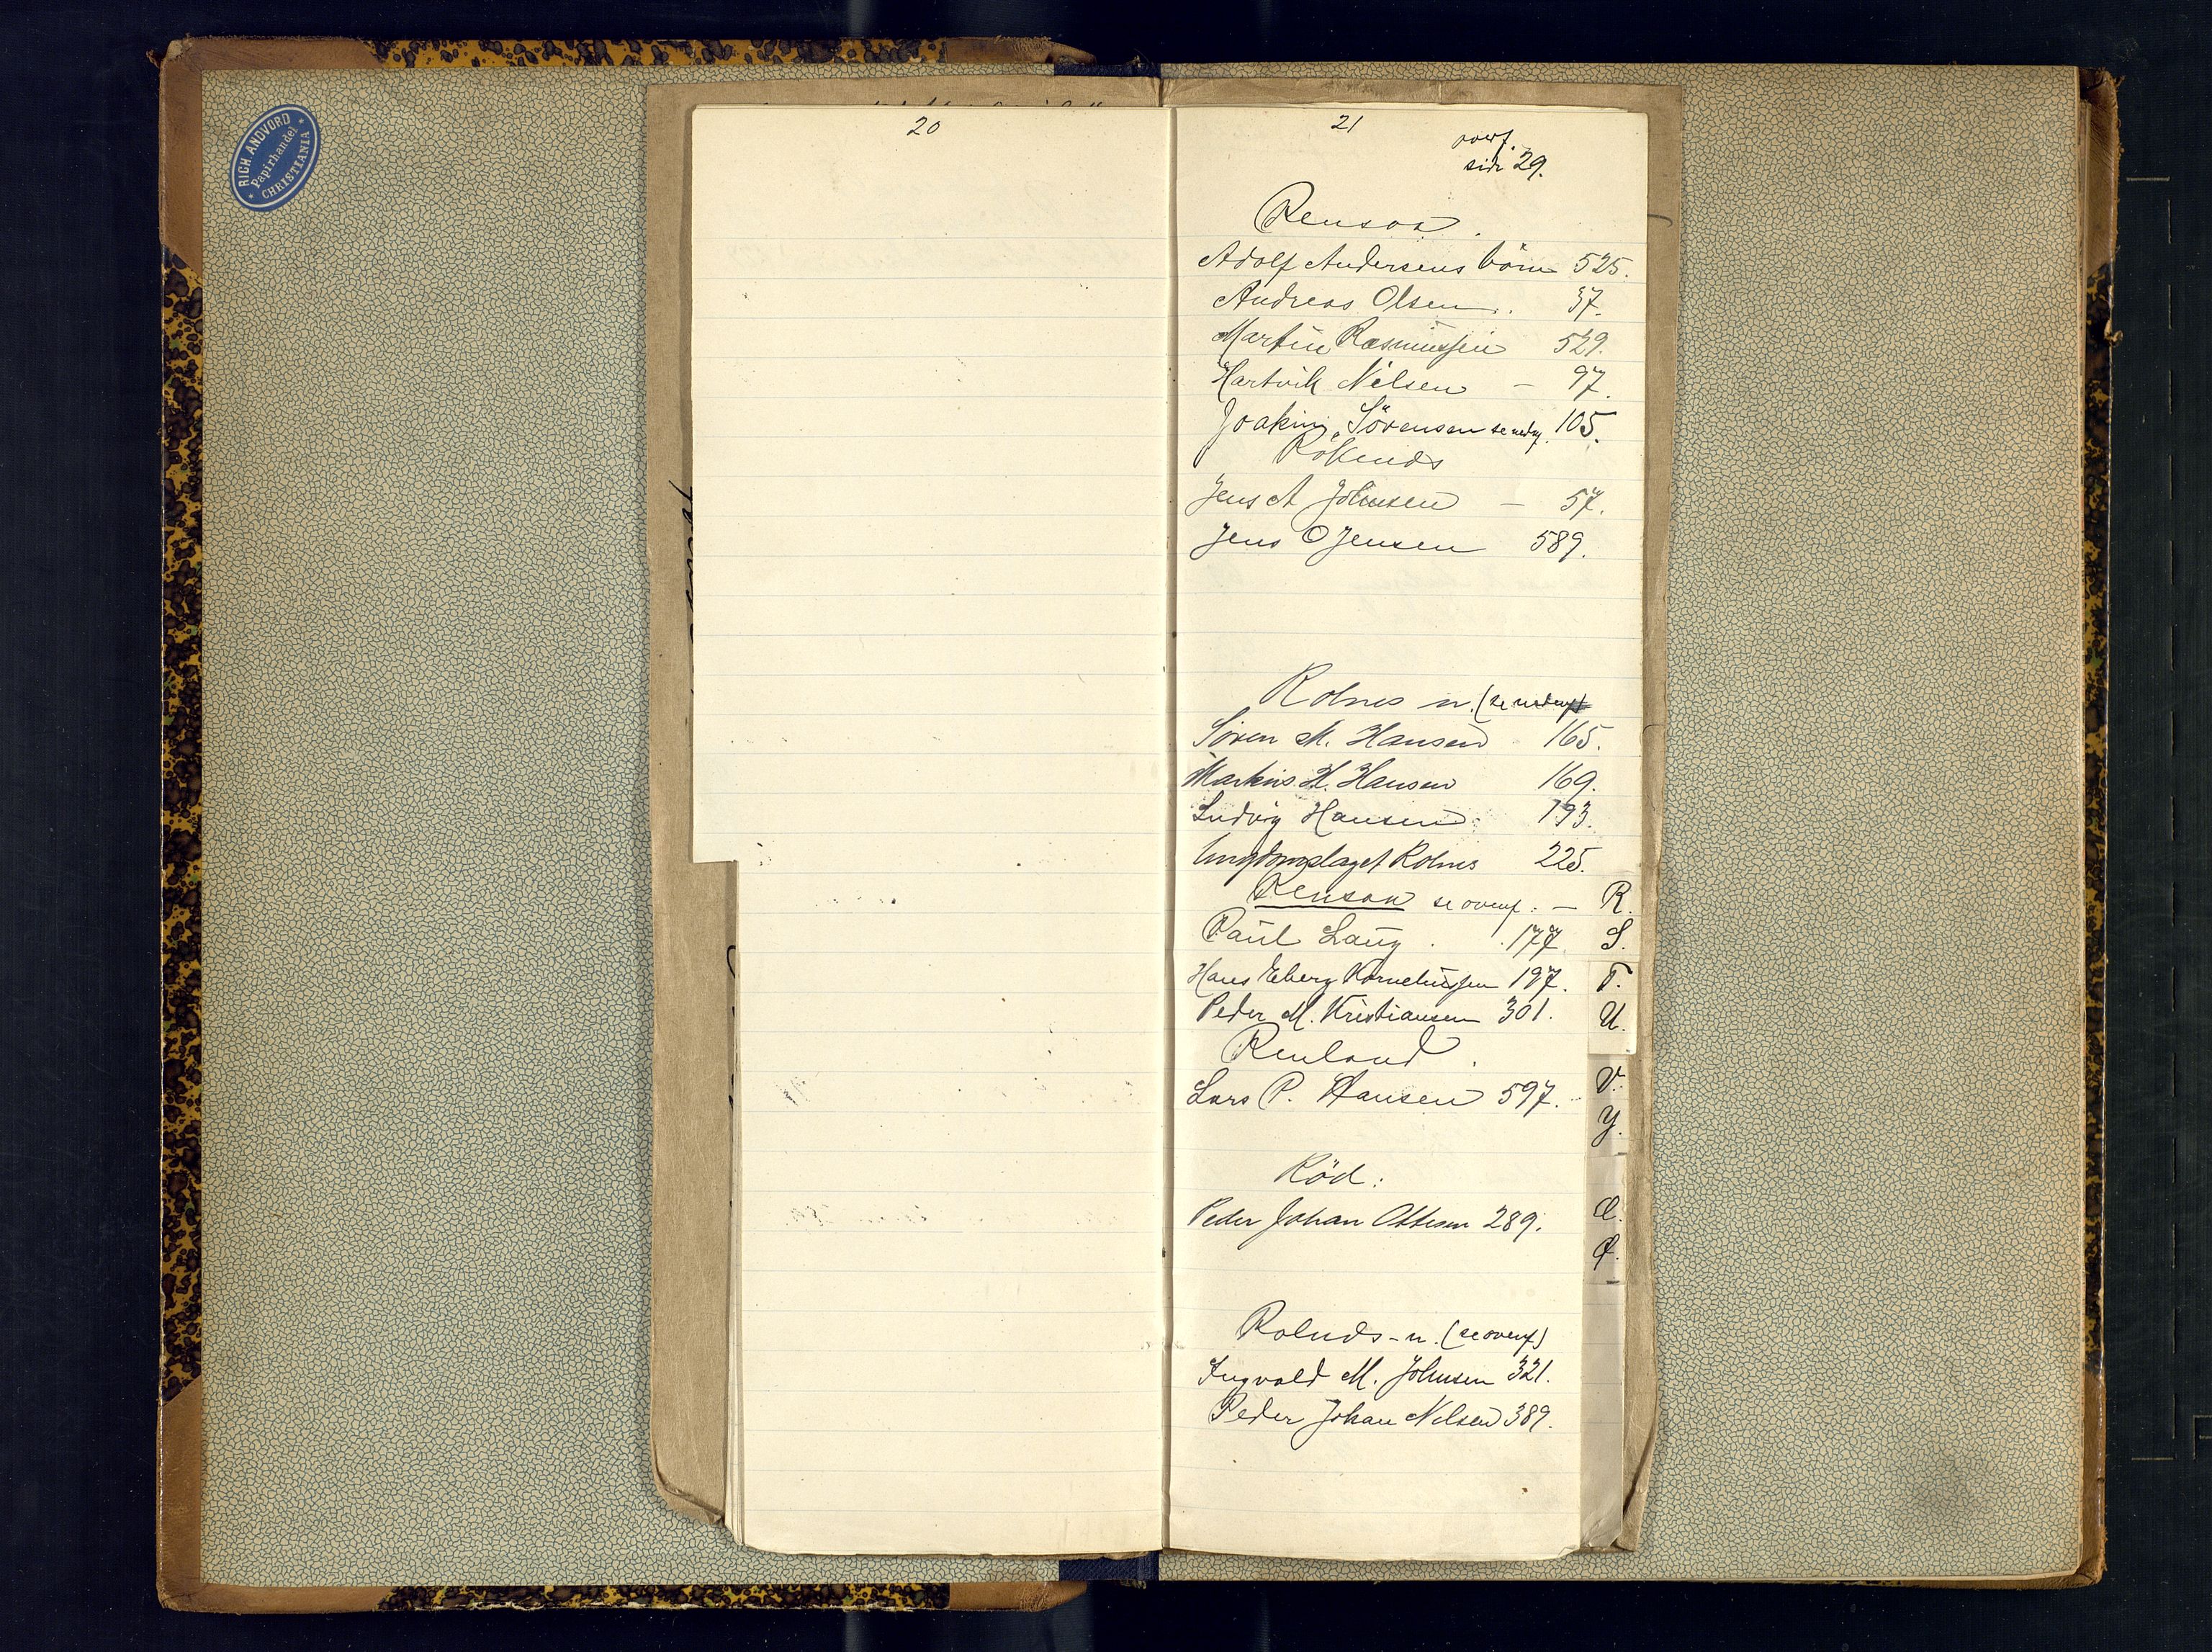 RICH. ANDVORD
Papirhandel
CHRISTIANIA
20
21
overf.
side 29.
Rensaa.
Adolf Andersens börn 525.
Andreas Olsen. 37.
Martin Rasmussen 529.
Hartvik Nilsen – 97.
Joakim Sörensen se nedf. 105.
Jens A Johnsen – 57.
Jens O Jensen 589.
Rolnes n. (se nedenf)
Sören M. Hansen 165.
Markus H. Hansen 169.
Ludvig Hansen 193.
Ungdomslaget Rolnes 225.
Rensaa se ovenf. – R.
Paul Laug . 177. S.
Hans Eberg Korneliussen 197. T.
Peder M. Kristiansen 301. U.
Renland.
Lars P. Hansen 597. V.
Y.
Röd.
Peder Johan Ottesen 289. Æ.
Ø.
Rolnds-n. (se ovenf)
Ingvald M. Johnsen 321.
Peder Johan Nilsen 389.